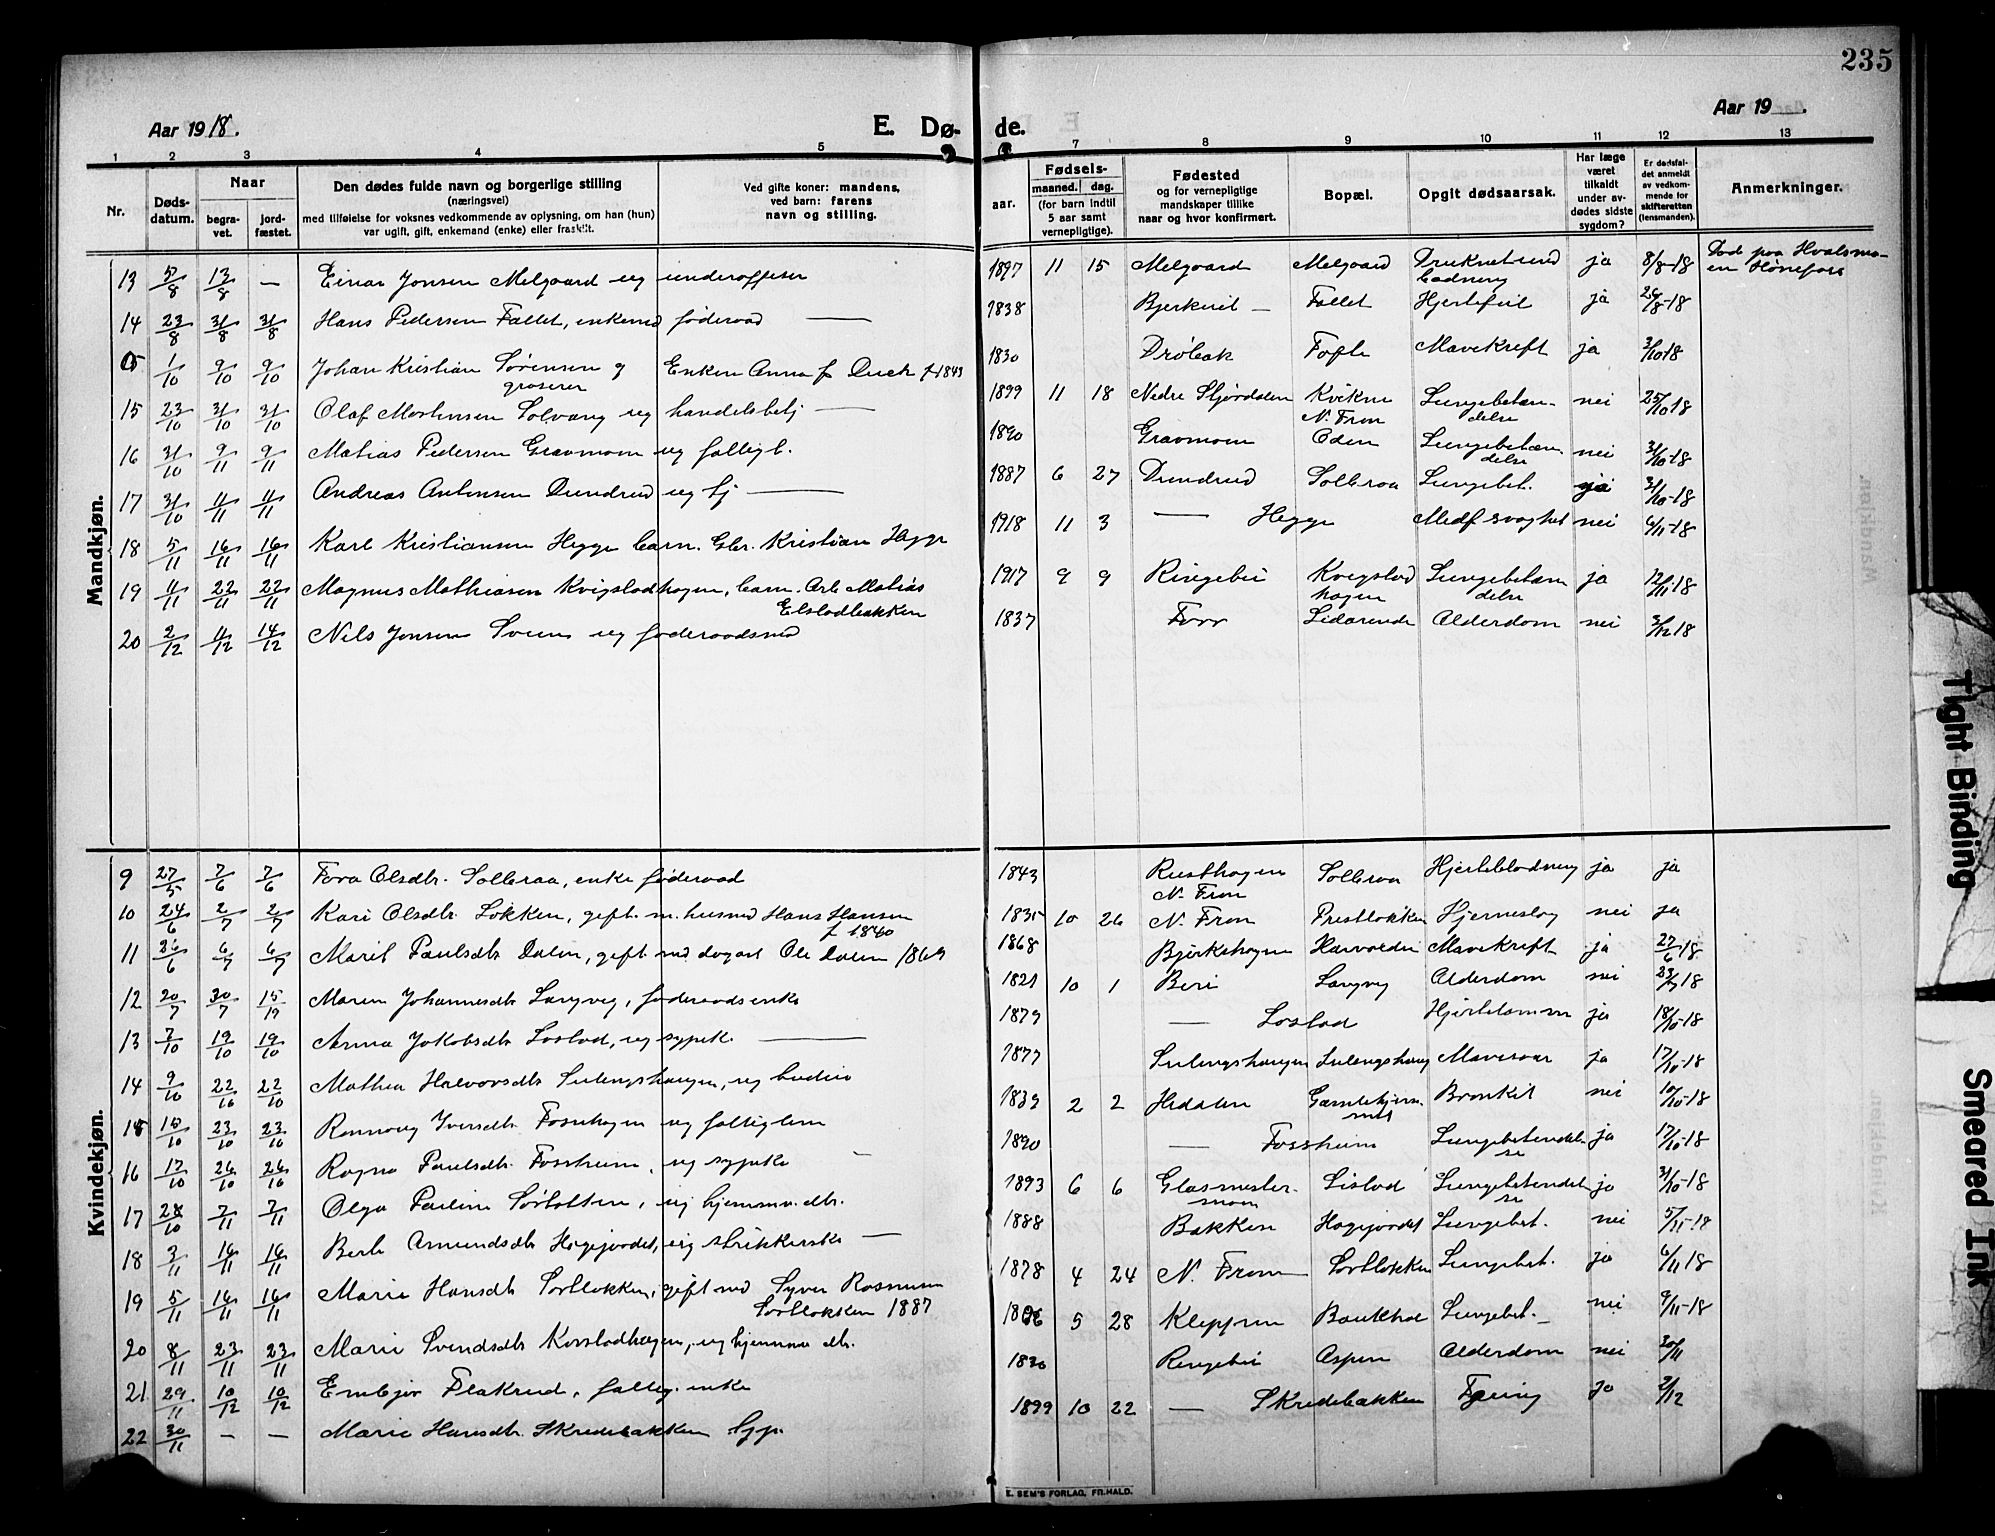 235
Aar 1918.
E. Dø- de.
Aar 19 .
1 2 3 4 5 7 8 9 10 11 12 13
Nr.
Døds-
datum.
Naar
begra-
vet.
jord-
fæstet.
Den dødes fulde navn og borgerlige stilling
(næringsvei)
med tilføielse for voksnes vedkommende av oplysning, om han (hun)
var ugift, gift, enkemand (enke) eller fraskilt.
Ved gifte koner: mandens,
ved barn: farens
navn og stilling.
Fødsels-
aar.
maaned. dag.
(for barn indtil
5 aar samt
vernepligtige).
Fødested
og for vernepligtige
mandskaper tillike
naar og hvor konfirmert.
Bopæl.
Opgit dødsaarsak.
Har læge
været
tilkaldt
under av-
dødes sidste
sygdom?
Er dødsfal-
det anmeldt
av vedkom-
mende for
skifteretten
(lensmanden).
Anmerkninger.
Mandkjøn.
13 5/8 13/8 — Einar Jonsen Melgaard ug underofficer 1897 11 15 Melgaard Melgaard Druknet under badning ja 8/8-18 Død paa Hvalsmo-
en Hønefoss
14 23/8 31/8 31/8 Hans Pedersen Fallet, enkemd føderaad — 1838 Bjerkeit — Fallet Hjertefeil ja 26/8-18
1/10 9/10 9/10 Johan Kristian Sørensen g Enken Anna f. Duch f. 1843 1830 Drøbak Mavekreft ja 3/10 18
groserer
15 23/10 31/10 31/10 Olaf Mortensen Solvang ug handelsbetj — 1899 11 18 Nedre Stjørdalen Kvikne Lungebetæn- nei 25/10 18
N. Fron delse
16 31/10 9/11 9/11 Matias Pedersen Gravmoen ug fattigl. 1890 Gravmoen Oden Lungebetæn- nei 31/10-18
delse
17 31/10 11/11 11/11 Andreas Antonsen Dundrud ug tj — 1887 6 27 Dundrud Solbraa Lungebet. ja 31/10-18
18 5/11 16/11 16/11 Karl Kristiansen Hegge barn. Gbr. Kristian Hegge 1918 11 3 — Hegge Medf svaghet nei 6/11-18
19 11/11 22/11 22/11 Magnus Mathiasen Kvigstadhagen, barn. Arb Matias 1917 9 9 Ringebu Kvigstad Lungebetæn ja 12/11-18
Elstadbakken hagen delse
20 2/12 11/12 14/12 Nils Jonsen Sveen ug føderaadsmd 1837 Forr Lidarende Alderdom nei 3/12 18
Kvindekjøn.
9 27/5 7/6 7/6 Tora Olsdtr. Solbraa, enke føderaad 1843 Rusthagen Solbraa Hjerteblødning ja ja
N. Fron
10 24/6 2/7 2/7 Kari Olsdtr. Løkken, gift. m. husmd Hans Hansen 1835 10 26 N. Fron Prestløkken Hjerneslag nei ja
f 1840
11 26/6 6/7 6/7 Marit Paulsdtr Dalen, gift md dagarb Ole Dalen 1869 1868 Bjørkehagen Mavekreft ja 27/6 18
12 20/7 30/7 15/19 Maren Johannesdtr Langvey, føderaadsenke 1821 10 1 Beri Langvey Alderdom nei 23/7 18
13 7/10 19/10 19/10 Anna Jakobsdtr Lostad, ug sypike — 1879 — Lostad ja 18/10-18
14 9/10 22/10 22/10 Mathea Halvorsdtr Sulengshaugen, ug budeie 1877 Sulengshaugen Sulengshaug Mavesaar ja 17/10-18
15 15/10 23/10 23/10 Rønnaug Iversdtr Fossehagen ug fattiglem 1839 2 2 Hedalen Bronkit nei 10/10-18
16 17/10 26/10 26/10 Ragna Paulsdtr. Fossheim, ug sypike — 1890 — Fossheim Lungebetendel- ja 17/10-18
se
17 28/10 7/11 7/11 Olga Pauline Sørtolten, ug hjemmev. dtr. 1893 6 6 Glasmester- Listad Lungebetendel- ja 31/10-18
moen se
18 3/11 16/11 16/11 Berte Amundsdtr Hagejordet, ug strikkerske — 1888 Bakken Hagejordet Lungebet. nei 5/11-18
19 5/11 16/11 16/11 Marie Hansdtr Sorbløkken, gift md Syver Rasmusen 1878 4 24 N. Fron Sorbløkken Lungebet. ja 6/11 18
Sorbløkken 1887
20 8/11 23/11 23/11 Marie Svendsdtr Korstadhagen, ug hjemmev dtr. 5 28 Kleppen Baukhol Lungebet. — nei 9/11-18
21 29/11 10/12 10/12 Embjør Flakrud, fattig. enke 1830 Ringebu Aspen Alderdom nei 30/11
22 30/11 — — Marie Hansdtr. Skredebakken 1899 10 22 — Skredebakken Tæring ja 2/12
E. SEM'S FORLAG, FR.HALD.
Tight Binding
Smeared Ink